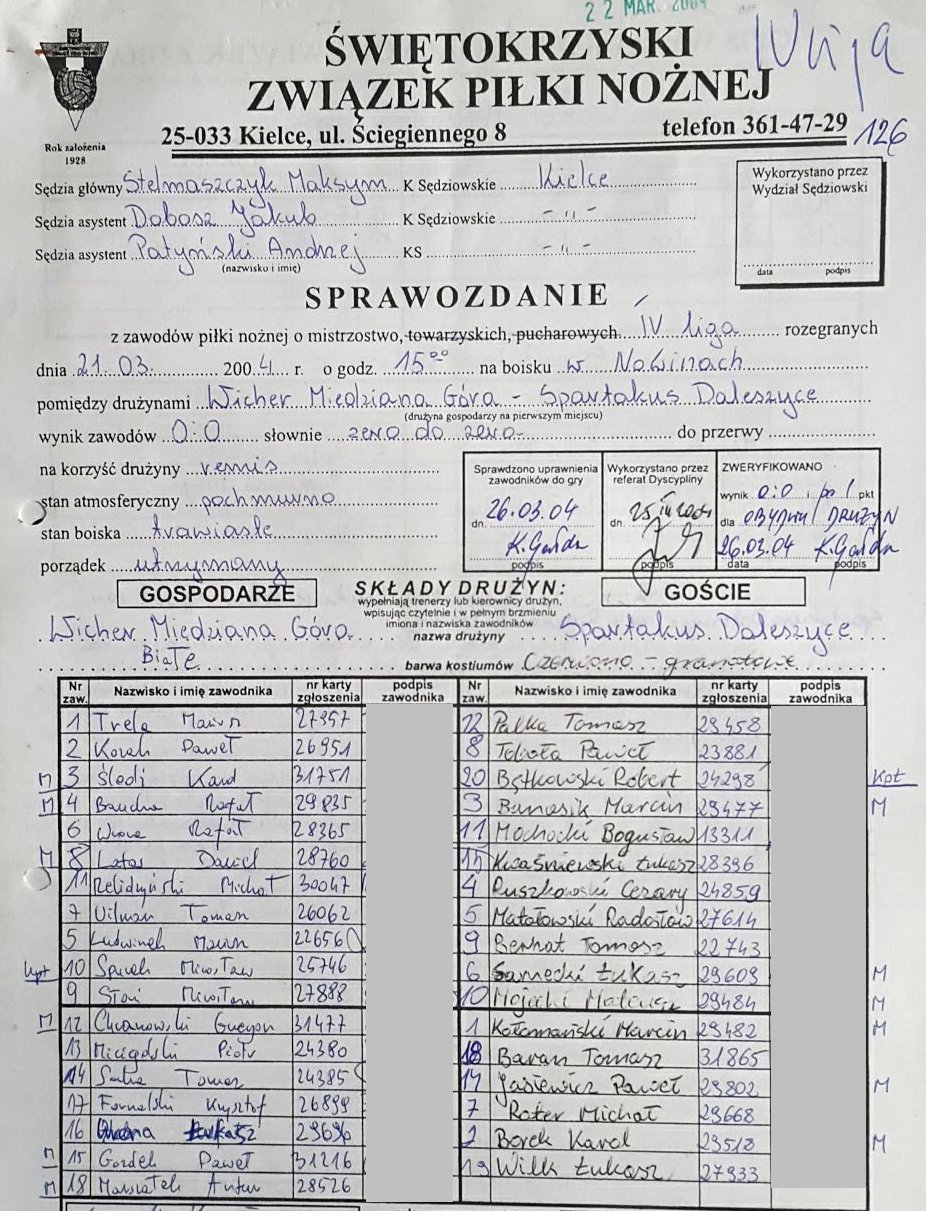 22 MAR. 2004
ŚWIĘTOKRZYSKI
ZWIĄZEK PIŁKI NOŻNEJ
25-033 Kielce, ul. Ściegiennego 8 telefon 361-47-29 126
Rok założenia
1928
Sędzia główny Stelmaszczyk Maksym K Sędziowskie Kielce
Sędzia asystent Dobosz Jakub K Sędziowskie - " -
Sędzia asystent Patyński Andrzej KS - " -
(nazwisko i imię)
Wykorzystano przez
Wydział Sędziowski
data podpis
SPRAWOZDANIE
z zawodów piłki nożnej o mistrzostwo, towarzyskich, pucharowych IV liga rozegranych
dnia 21.03. 2004 r. o godz. 15 00 na boisku w Nowinach
pomiędzy drużynami Wicher Miedziana Góra - Spartakus Daleszyce
(drużyna gospodarzy na pierwszym miejscu)
wynik zawodów 0:0 słownie zero do zero do przerwy
na korzyść drużyny remis
stan atmosferyczny pochmurno
stan boiska trawiaste
porządek utrzymany
Sprawdzono uprawnienia
zawodników do gry
26.03.04
dn.
K. Gołda
podpis
Wykorzystano przez
referat Dyscypliny
dn. 25 III 2004
podpis
ZWERYFIKOWANO
wynik 0:0 i po 1 pkt
dla OBYDWU DRUŻYN
26.03.04 K. Gołda
data podpis
GOSPODARZE SKŁADY DRUŻYN: GOŚCIE
wypełniają trenerzy lub kierownicy drużyn,
wpisując czytelnie i w pełnym brzmieniu
imiona i nazwiska zawodników
Wicher Miedziana Góra nazwa drużyny Spartakus Daleszyce
Białe barwa kostiumów Czerwono - granatowe
Nr zaw. Nazwisko i imię zawodnika nr karty zgłoszenia podpis zawodnika Nr zaw. Nazwisko i imię zawodnika nr karty zgłoszenia podpis zawodnika
1 Trela 27957 12 Pałka Tomasz 29458
2 Paweł 26951 8 Toboła Paweł 23881
M 3 Śledź Karol 31751 20 Bątkowski Robert 24298 Kpt
M 4 Rafał 29835 3 Banasik Marcin 29477 M
6 Rafał 28365 11 Mochocki Bogusław 13311
M 8 Latos Daniel 28760 15 Kwaśniewski Łukasz 28396
11 Michał 30047 4 Puszkowski Cezary 24859
7 Tomasz 26062 5 Matałowski Radosław 27614
5 Ludwinek 22656 9 Bernat Tomasz 22743
kpt 10 Mirosław 25746 6 Sanecki Łukasz 29609 M
9 Słoń Mirosław 27888 10 Mojecki Mateusz 29484 M
M 12 31477 1 Kołomański Marcin 29482 M
13 Piotr 24380 18 Baran Tomasz 31865
14 Tomasz 24385 14 Jasiewicz Paweł 29802 M
17 Fornalski Krzysztof 26899 7 Roter Michał 29668
16 Łukasz 29696 2 Borek Karol 29518 M
M 15 Gordek Paweł 31216 19 Wilk Łukasz 27933
M 18 Artur 28526